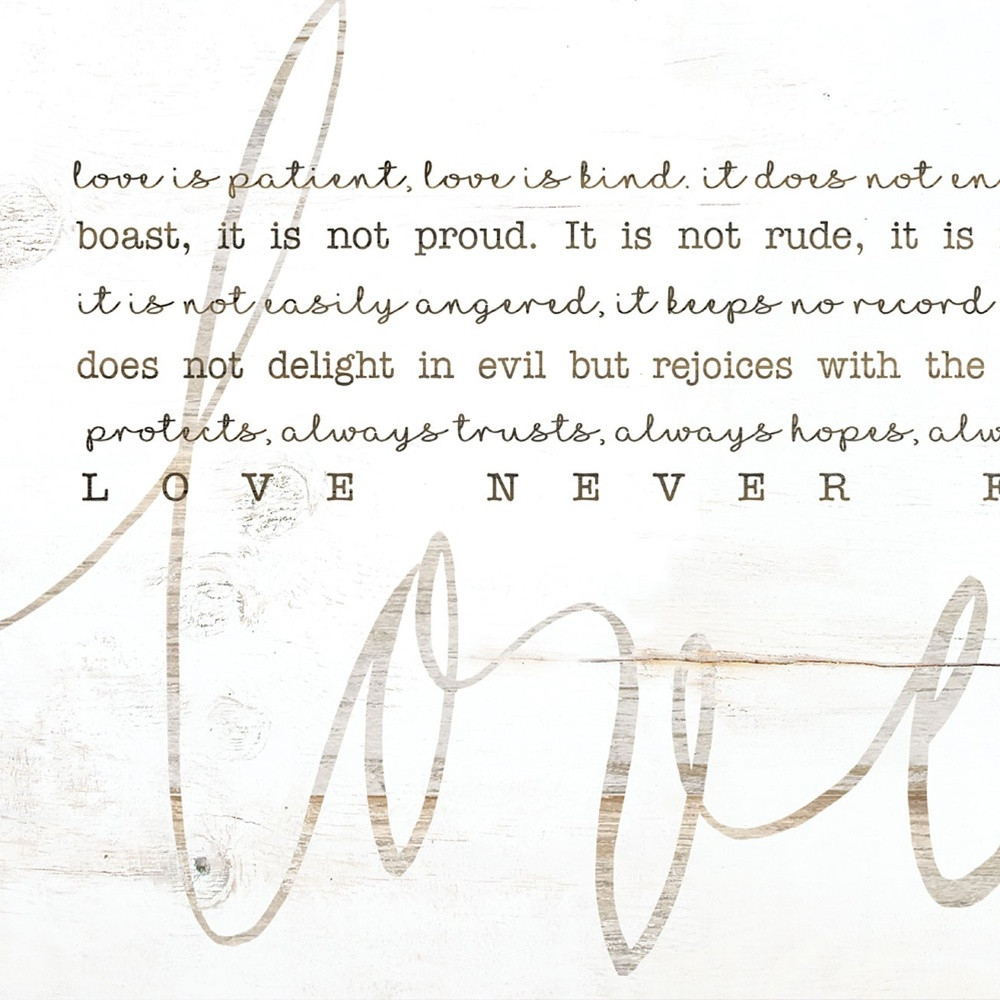 love is patient, love is kind. it does not en
boast, it is not proud. It is not rude, it is
it is not easily angered, it keeps no record
does not delight in evil but rejoices with the
protects, always trusts, always hopes, alw
LOVE NEVER F
love